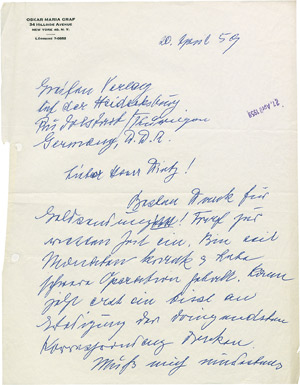 OSKAR MARIA GRAF
34 HILLSIDE AVENUE
NEW YORK 40, N. Y.
LORRAINE 7-0685
20. April 59
Greifen Verlag
Auf der Heidecksburg
Rudolstadt / Thüringen
Germany, D.D.R.
Lieber Herr Dietz!
Besten Dank für
Geldsendung! Traf zur
rechten Zeit ein. Bin seit
Monaten krank & habe
schwere Operation gehabt. Kann
jetzt erst ein bissl an
Erledigung der dringendsten
Korrespondenz denken.
Muß mich mindestens